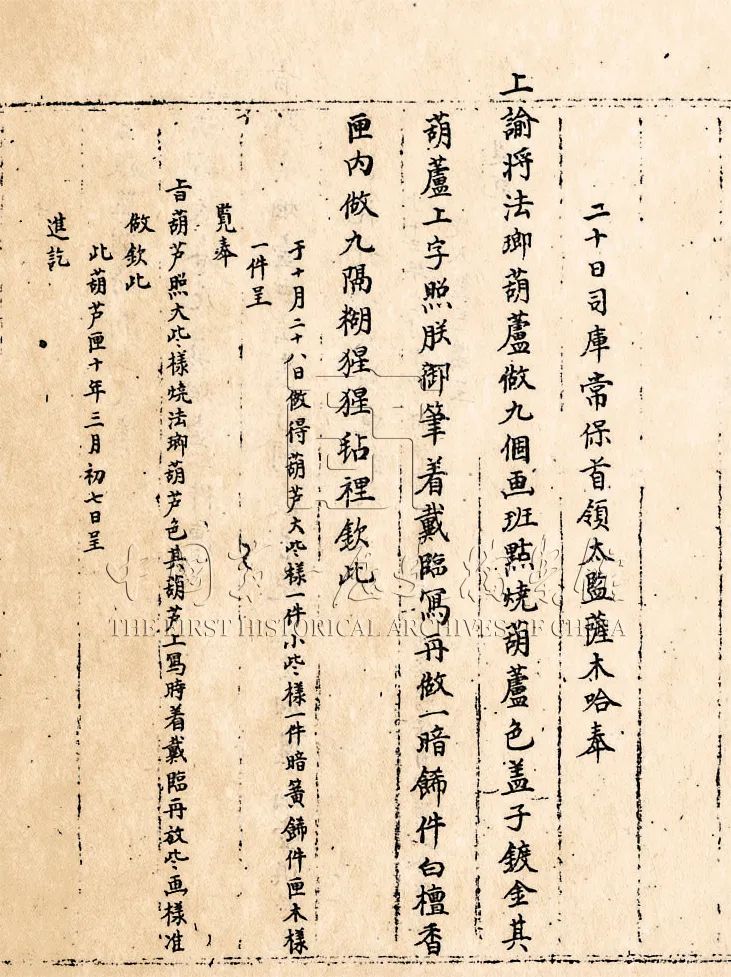 二十日司庫常保首領太監薩木哈奉
上諭将法瑯葫蘆做九個画班點燒葫蘆色盖子鍍金其
葫蘆上字照朕御筆着戴臨寫再做一暗鎊件白檀香
匣内做九隔糊猩猩毡裡欽此
于十月二十八日做得葫芦大些樣一件小些樣一件暗簧鎊件匣木樣
一件呈
覧奉
旨葫芦照大些樣燒法瑯葫芦色其葫芦上寫時着戴臨再放些画樣准
做欽此
此葫芦匣十年三月初七日呈
進訖
中國第一歷史檔案館
THE FIRST HISTORICAL ARCHIVES OF CHINA